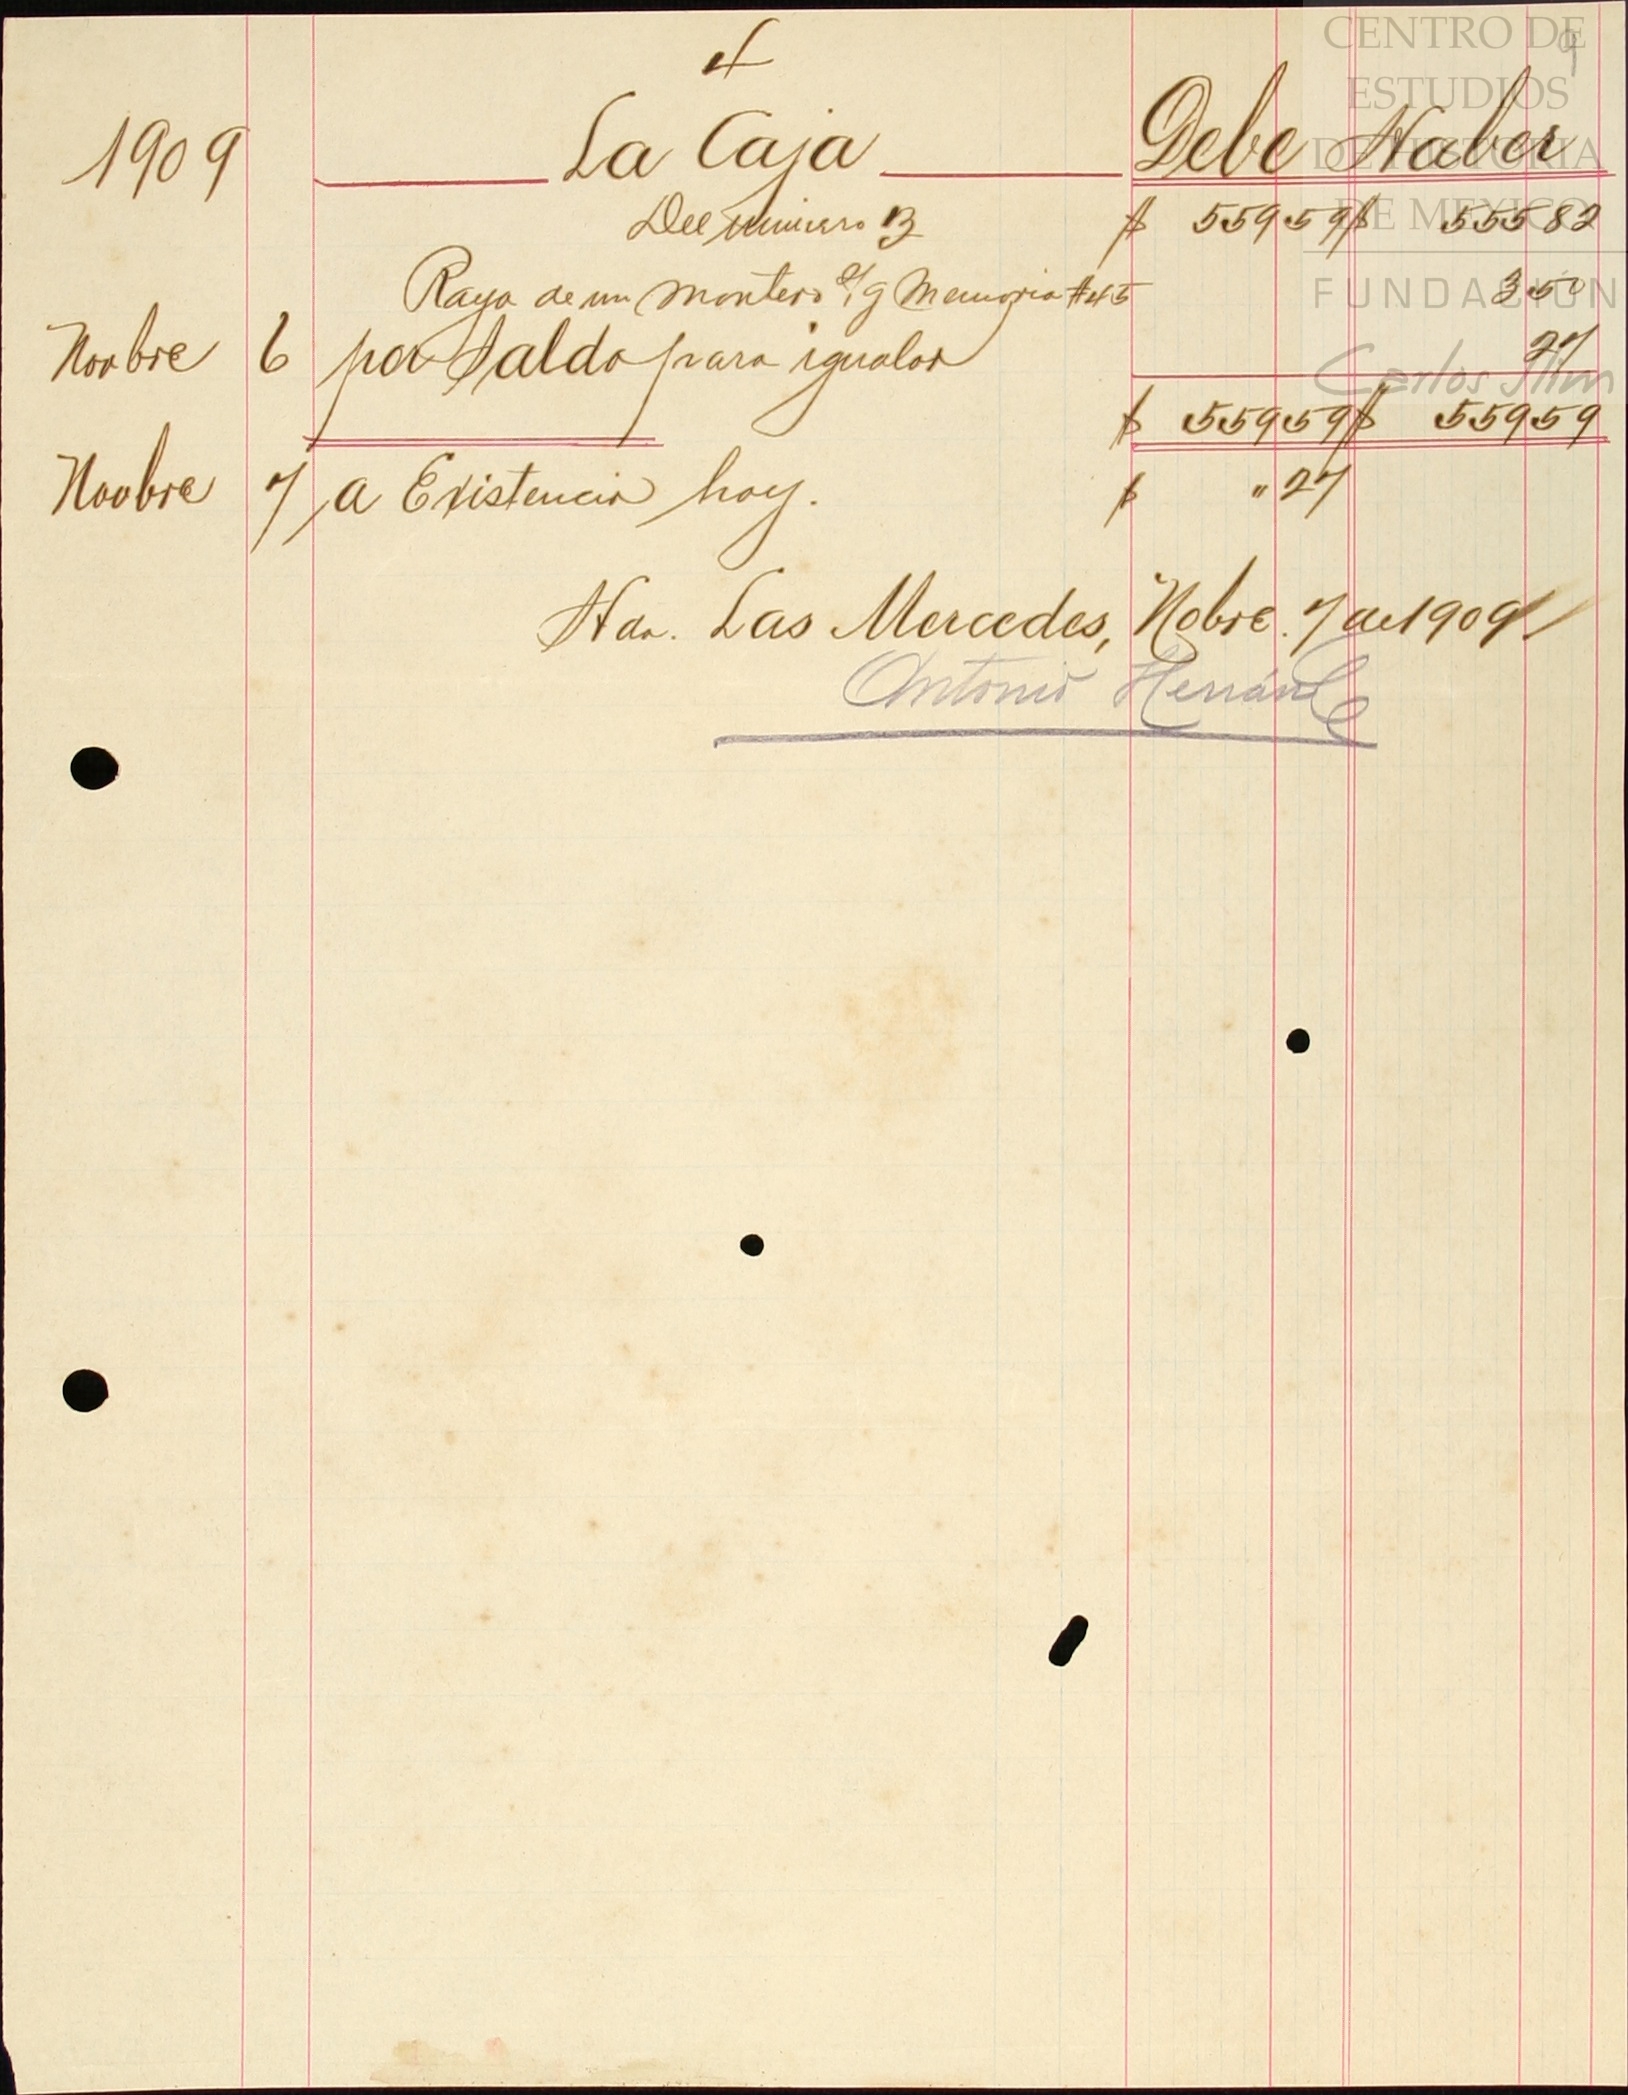 4
9
1909 La Caja Debe Haber
Del número 3 $ 559 59 $ 555 82
Raya de un montero c/g Memoria #45 3 50
Novbre 6 por Saldo para igualar 27
$ 559 59 $ 559 59
Novbre 7 a Existencia hoy. $ " 27
Hda. Las Mercedes, Nobre. 7 de 1909
Antonio
CENTRO DE
ESTUDIOS
DE HISTORIA
DE MEXICO
FUNDACIÓN
Carlos Slim